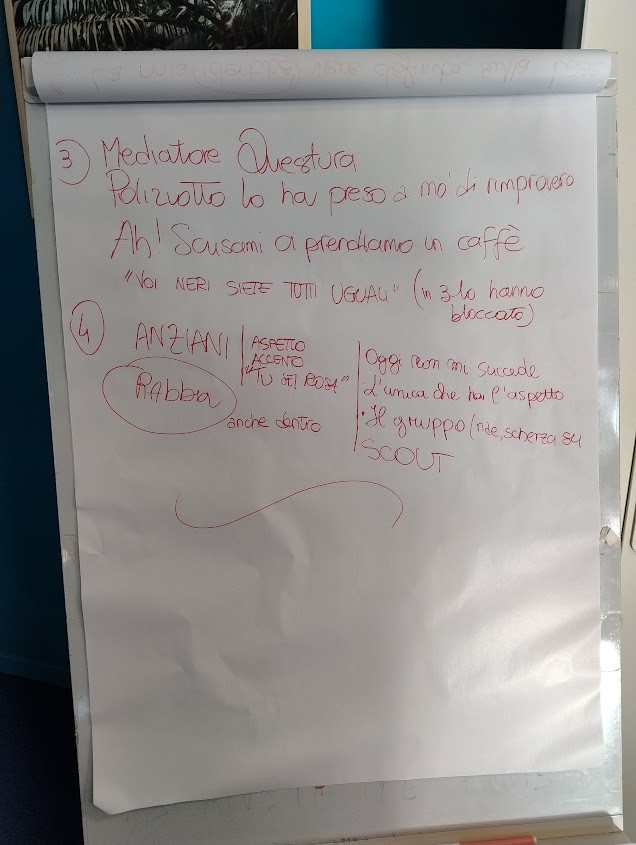 La mia identità viene definita sulla
3 Mediatore Questura
Poliziotto lo ha preso a mo' di rimprovero
Ah! Scusami ci prendiamo un caffè
"VOI NERI SIETE TUTTI UGUALI" (in 3 lo hanno
bloccato)
4 ANZIANI
ASPETTO
ACCENTO
"TU SEI ROSA"
RAbbia
anche dentro
Oggi non mi succede
L'unica che ha l'aspetto
• Il gruppo (ride, scherza su
SCOUT